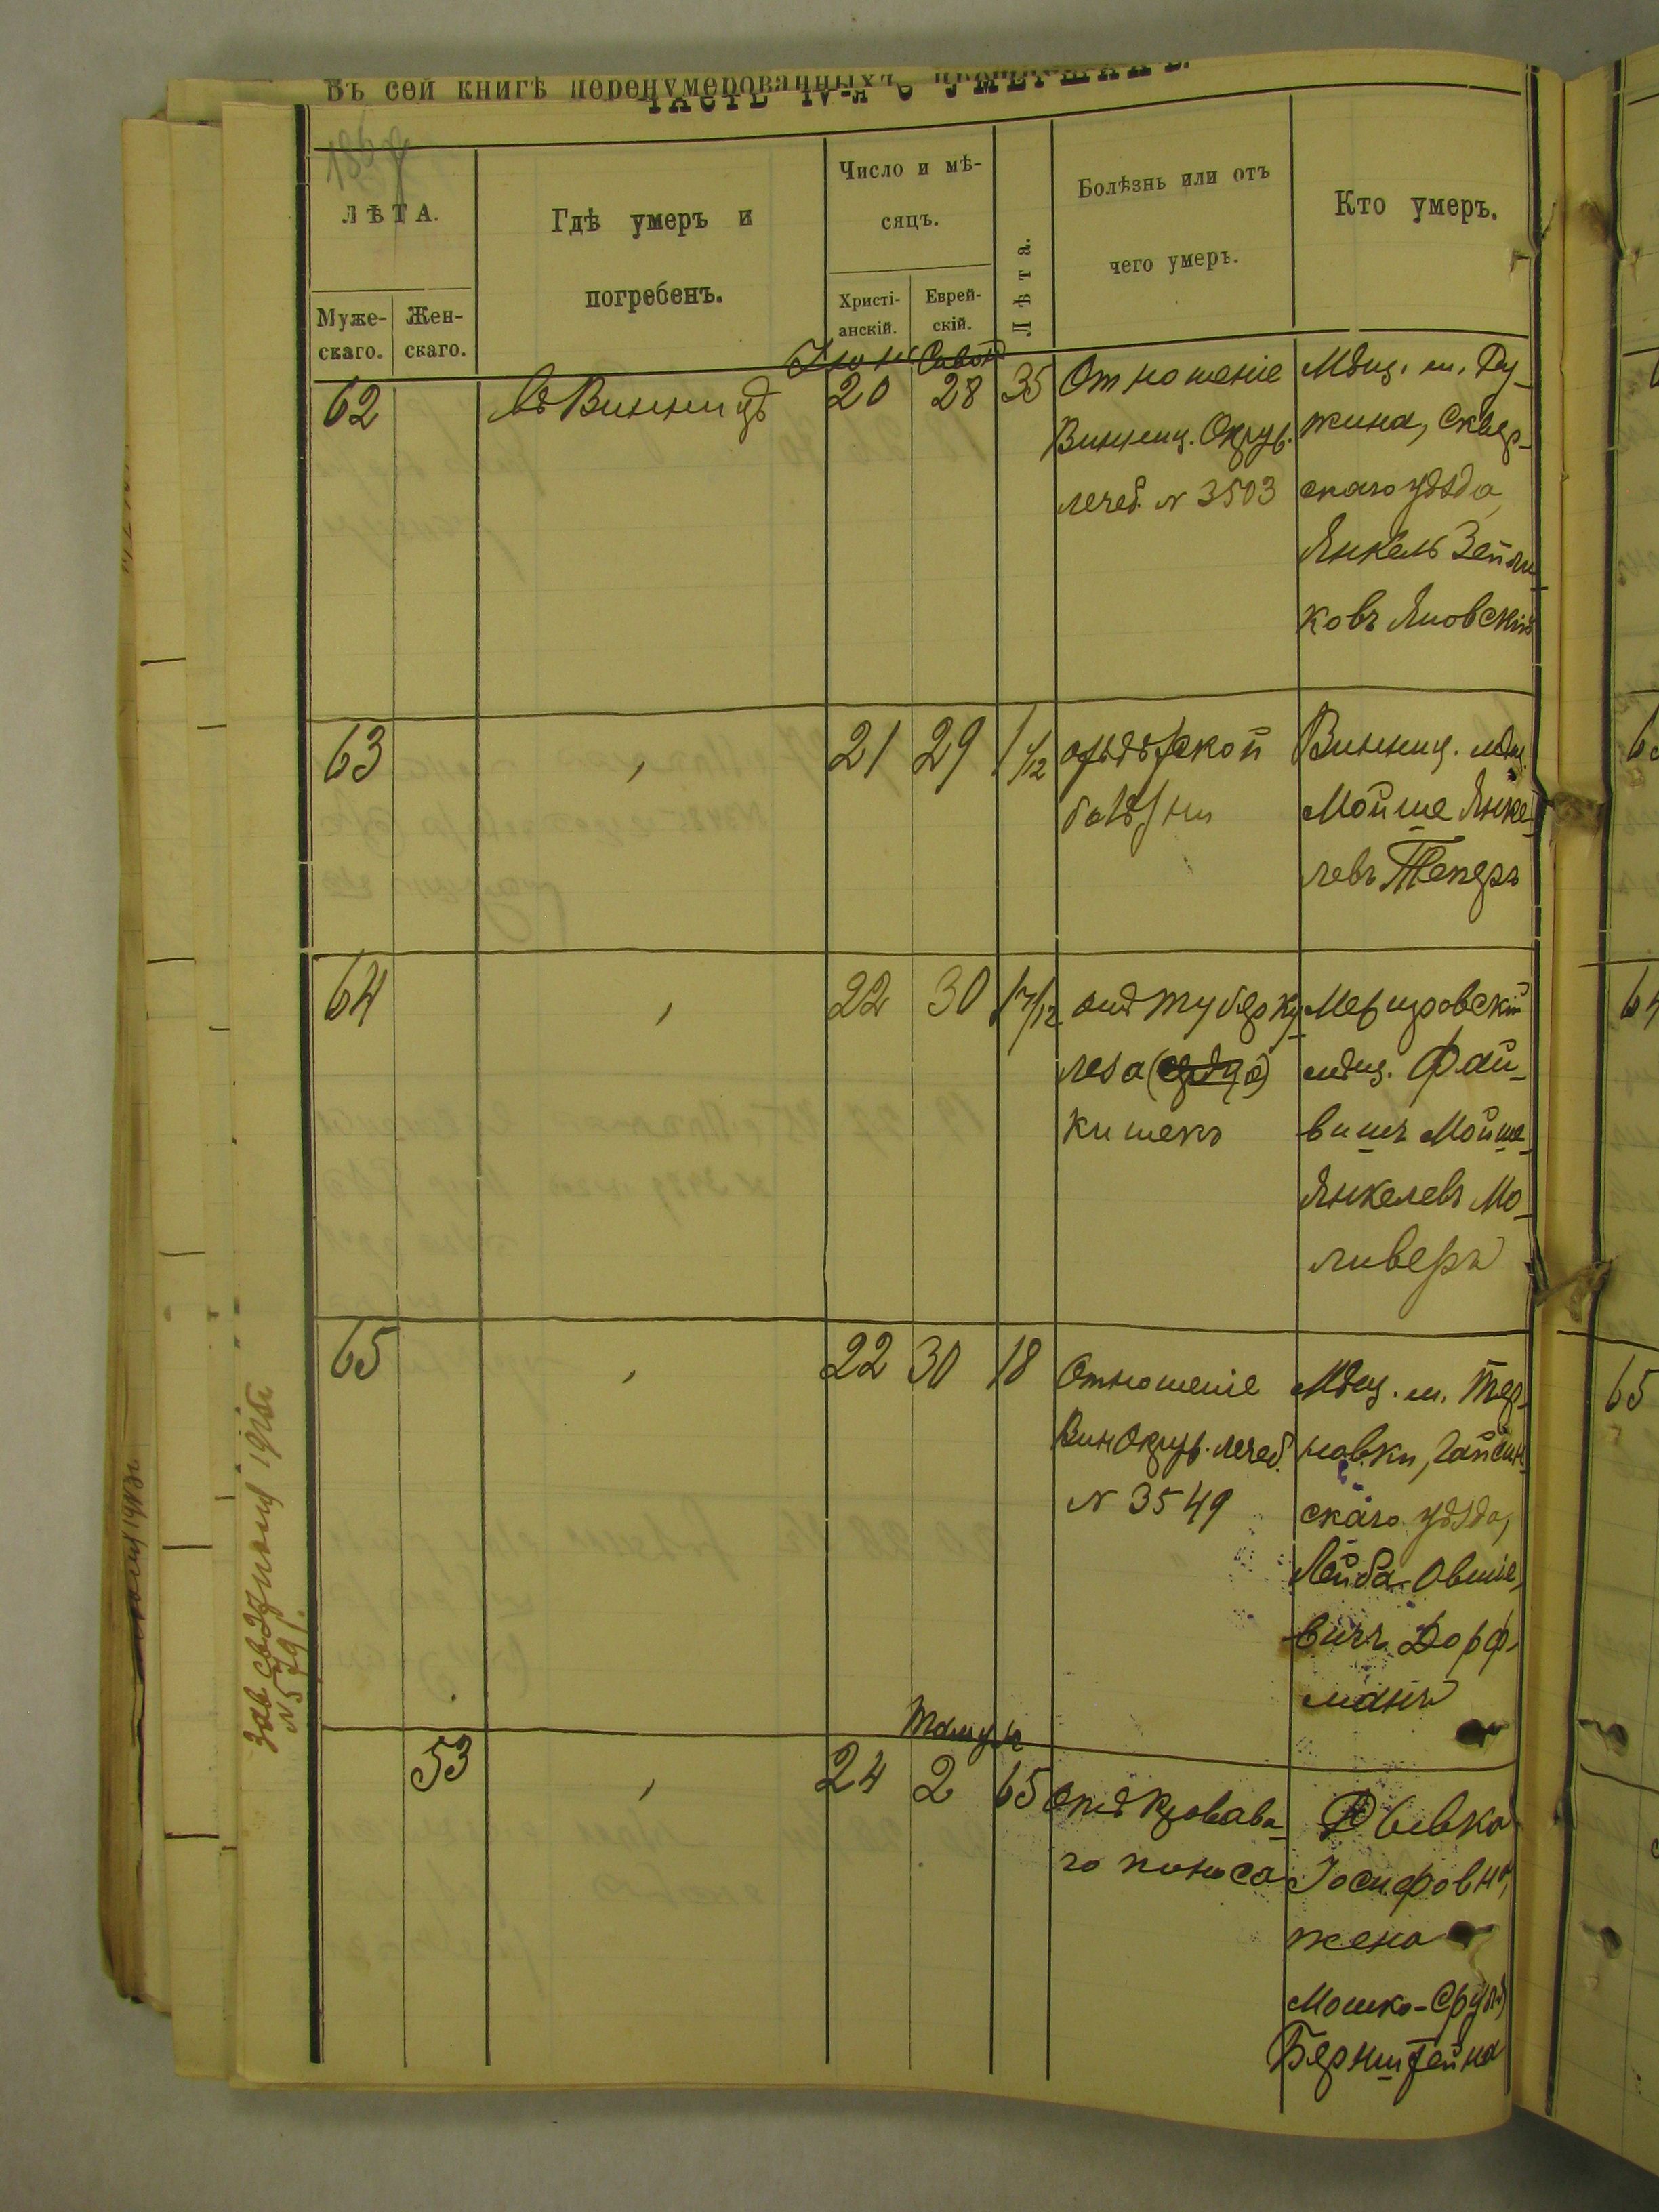 Въ сей книгѣ перенумерованныхъ
ЧАСТЬ IV-я О УМЕРШИХЪ.
ЛѢТА.
Муже-
скаго.
Жен-
скаго.
Гдѣ умеръ и
погребенъ.
Число и мѣ-
сяцъ.
Христі-
анскій.
Еврей-
скій.
Лѣта.
Болѣзнь или отъ
чего умеръ.
Кто умеръ.
62
въ Винницѣ
20
28
35
Отношеніе
Винниц. Окруж.
лечеб. № 3503
Мѣщ. м. Ру-
жина, Сквир-
скаго уѣзда
Янкель Зейли-
ковъ Яновскій
63
"
21
29
1 1/12
дѣтской
болѣзни
Винниц. мѣщ.
Мойше Янке-
левъ Теперъ
64
"
22
30
1 7/12
отъ туберку-
леза
кишекъ
мѣщ. Фай-
вишъ Мойше
Янкелевъ Мо-
ливеръ
65
"
22
30
18
Отношеніе
Вин Окруж. лечеб.
№ 3549
Мѣщ. м. Тер-
новки, Гайсин-
скаго уѣзда,
Лейба Овшіе-
вичъ Дорф-
манъ
Тамуз
53
"
24
2
65
Отъ кровава-
го поноса
Рывка
Іосифовна,
жена
Мошко-Сруля
Бернштейна
№ 579
65